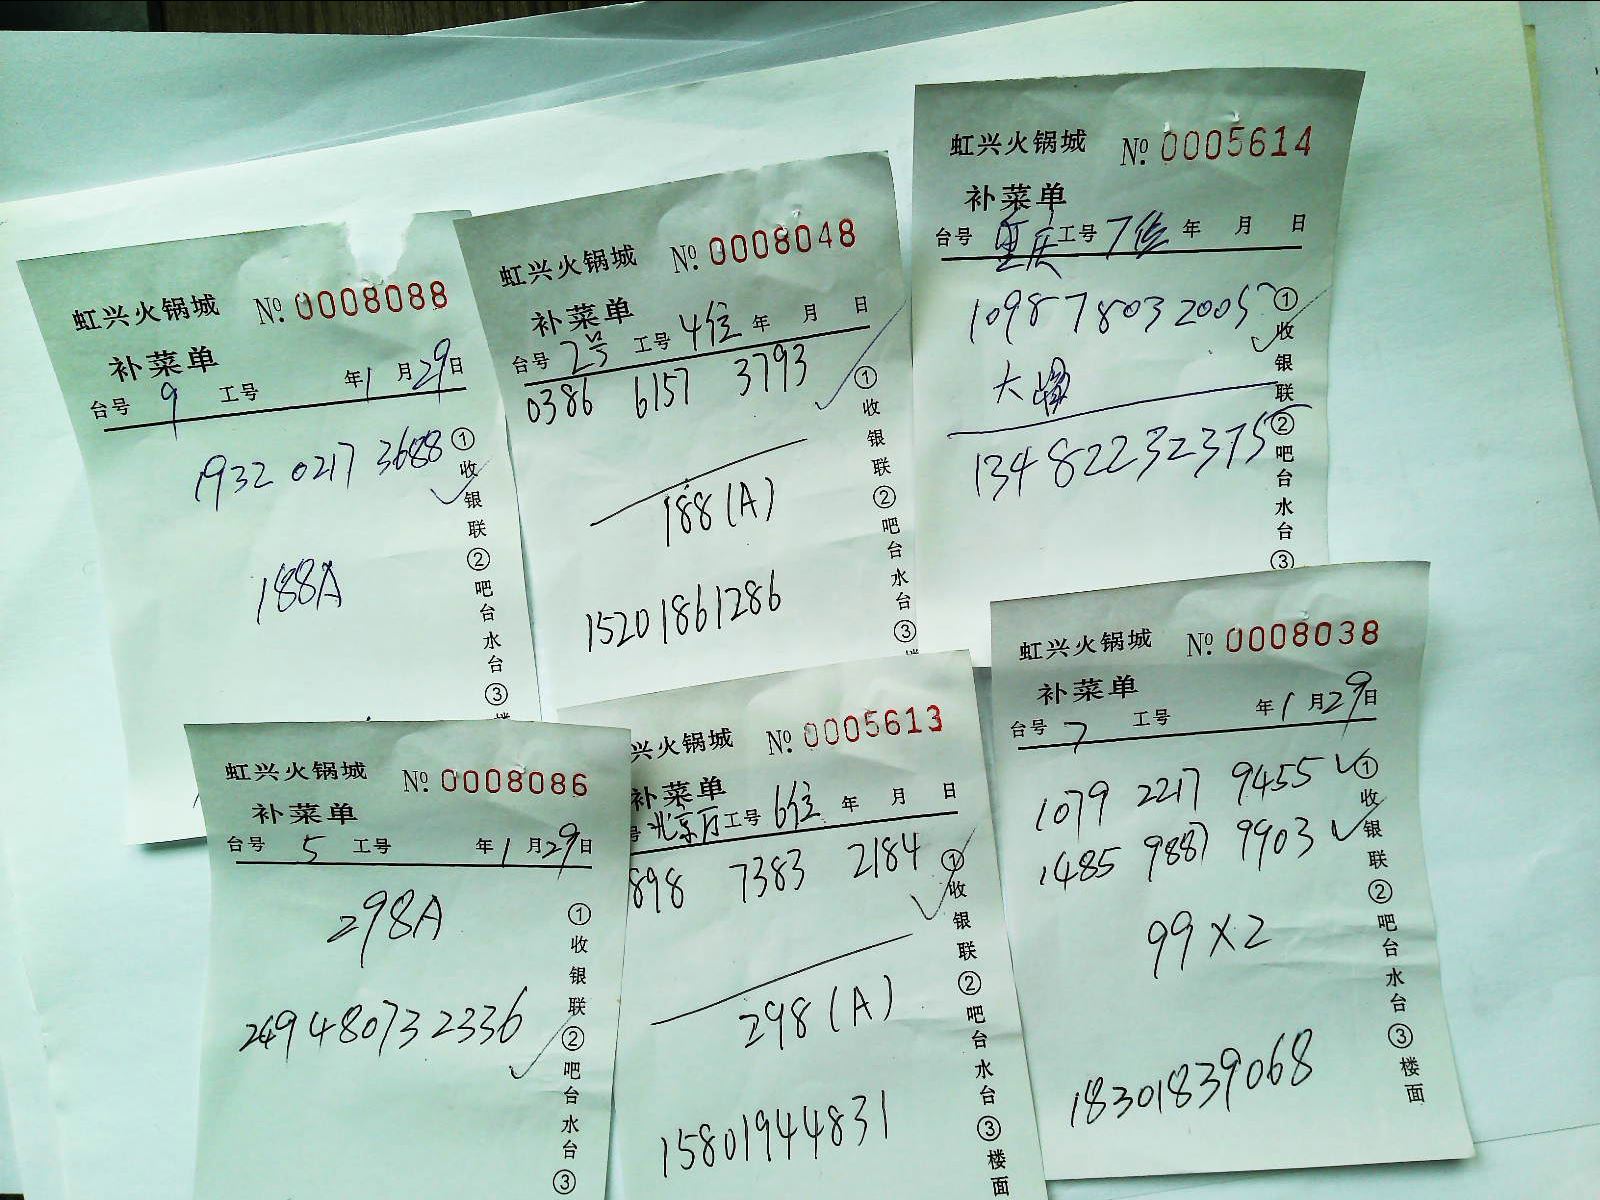 虹兴火锅城 №. 0008088
补菜单
台号 9 工号 年 1 月 29 日
1932 0217 3688
188A
①收银联②吧台水台③
虹兴火锅城 №. 0008048
补菜单
台号 2号 工号 4位 年 月 日
0386 6157 3793
188(A)
15201861286
①收银联②吧台水台③
虹兴火锅城 №. 0005614
补菜单
台号 重庆 工号 7位 年 月 日
1098 7803 2005
大
13482232375
①收银联②吧台水台③
虹兴火锅城 №. 0008086
补菜单
台号 5 工号 年 1 月 29 日
298A
249480732336
①收银联②吧台水台③
兴火锅城 №. 0005613
补菜单
号 北京厅 工号 6位 年 月 日
898 7383 2184
298(A)
15801944831
①收银联②吧台水台③楼面
虹兴火锅城 №. 0008038
补菜单
台号 7 工号 年 1 月 29 日
1079 2217 9455
1485 9887 9903
99×2
18301839068
①收银联②吧台水台③楼面